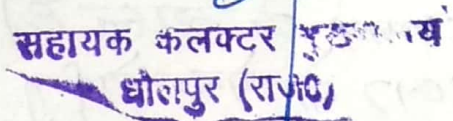 सहायक कलक्टर
धौलपुर (राज0)